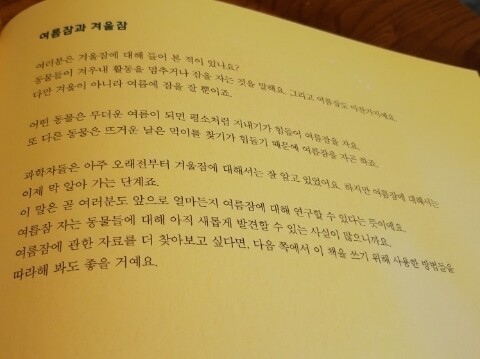 여름잠과 겨울잠
여러분은 겨울잠에 대해 들어 본 적이 있나요?
동물들이 겨우내 활동을 멈추거나 잠을 자는 것을 말해요. 그리고 여름잠도 마찬가지예요.
다만 겨울이 아니라 여름에 잠을 잘 뿐이죠.
어떤 동물은 무더운 여름이 되면 평소처럼 지내기가 힘들어 여름잠을 자요.
또 다른 동물은 뜨거운 낮은 먹이를 찾기가 힘들기 때문에 여름잠을 자곤 하죠.
과학자들은 아주 오래전부터 겨울잠에 대해서는 잘 알고 있었어요. 하지만 여름잠에 대해서는
이제 막 알아 가는 단계죠.
이 말은 곧 여러분도 앞으로 얼마든지 여름잠에 대해 연구할 수 있다는 뜻이예요.
여름잠 자는 동물들에 대해 아직 새롭게 발견할 수 있는 사실이 많으니까요.
여름잠에 관한 자료를 더 찾아보고 싶다면, 다음 쪽에서 이 책을 쓰기 위해 사용한 방법들을
따라해 봐도 좋을 거예요.